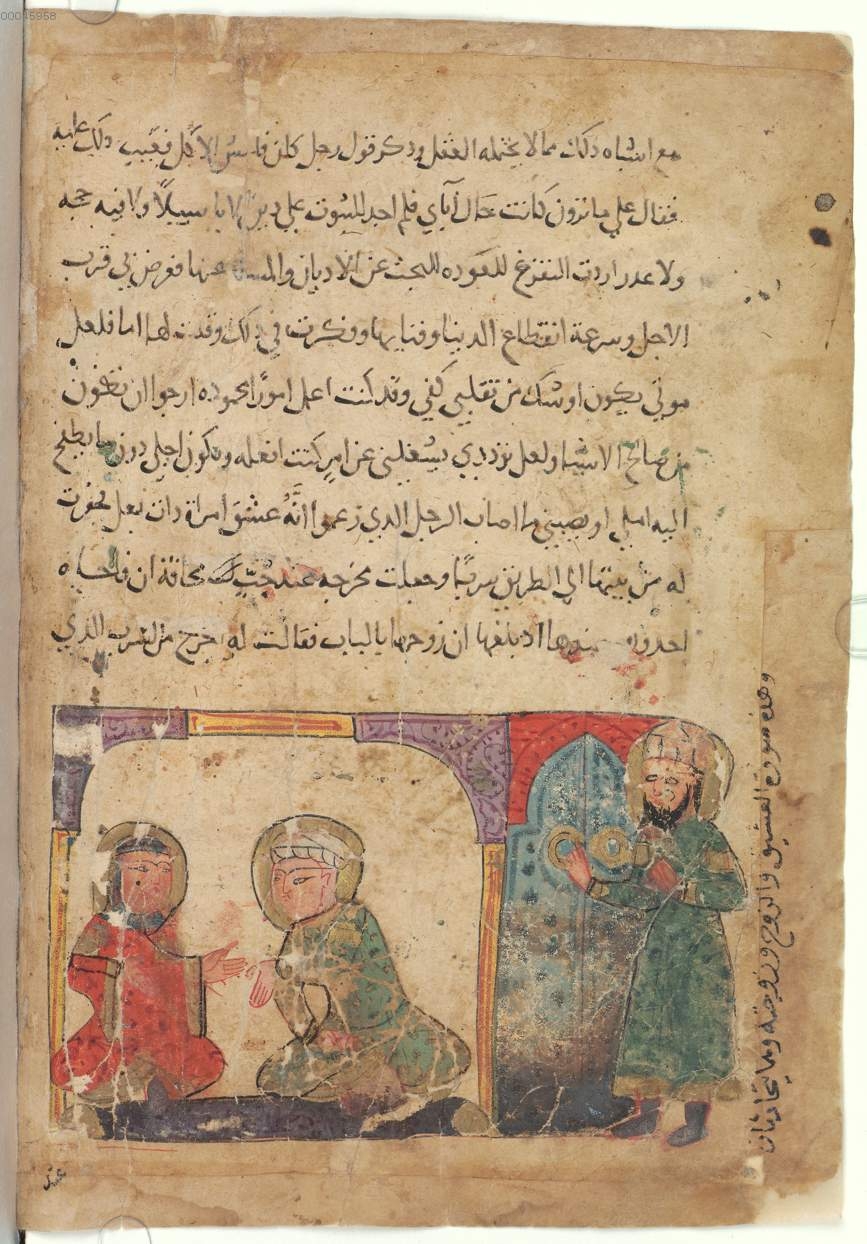 00045958
مع اشباه ذلك مما لا يحتمله العقل وذكر قول رجل كان فا الاكل فعيب ذلك عليه
فقال علي ما ترون كانت حال اباي فلم اجد للثبوت علي دين الابا سبيلاً ولا فيه حجه
ولا عذر اردت التفرغ للعوده للبحث عن الاديان والمسله عنها فعرض بي قرب
الاجل وسرعة انقطاع الدنيا وفنايها وفكرت في ذلك وقلت لها اما فلعل
موتي يكون اوشك من تقلبي كفي وقد كنت اعمل امورًا محموده ارجوا ان تكون
من صالح الاشيا ولعل ترددي يشغلني عن امرٍ كنت افعله ويكون اجلي دون ما يطمح
اليه املي او يصيبني ما اصاب الرجل الذي زعموا انَّهُ عشق امراة ذات بعل فحفرت
له من بيتها الي الطريق سربًا وجعلت مخرجه عند جُبّ مخافة ان فاجاه
احد وهو عندها اذ بلغها ان زوجها بالباب فقالت له اخرج من السرب الذي
وهذه صورة العشيق والزوج وزوجته وهما يتحادثان
عند